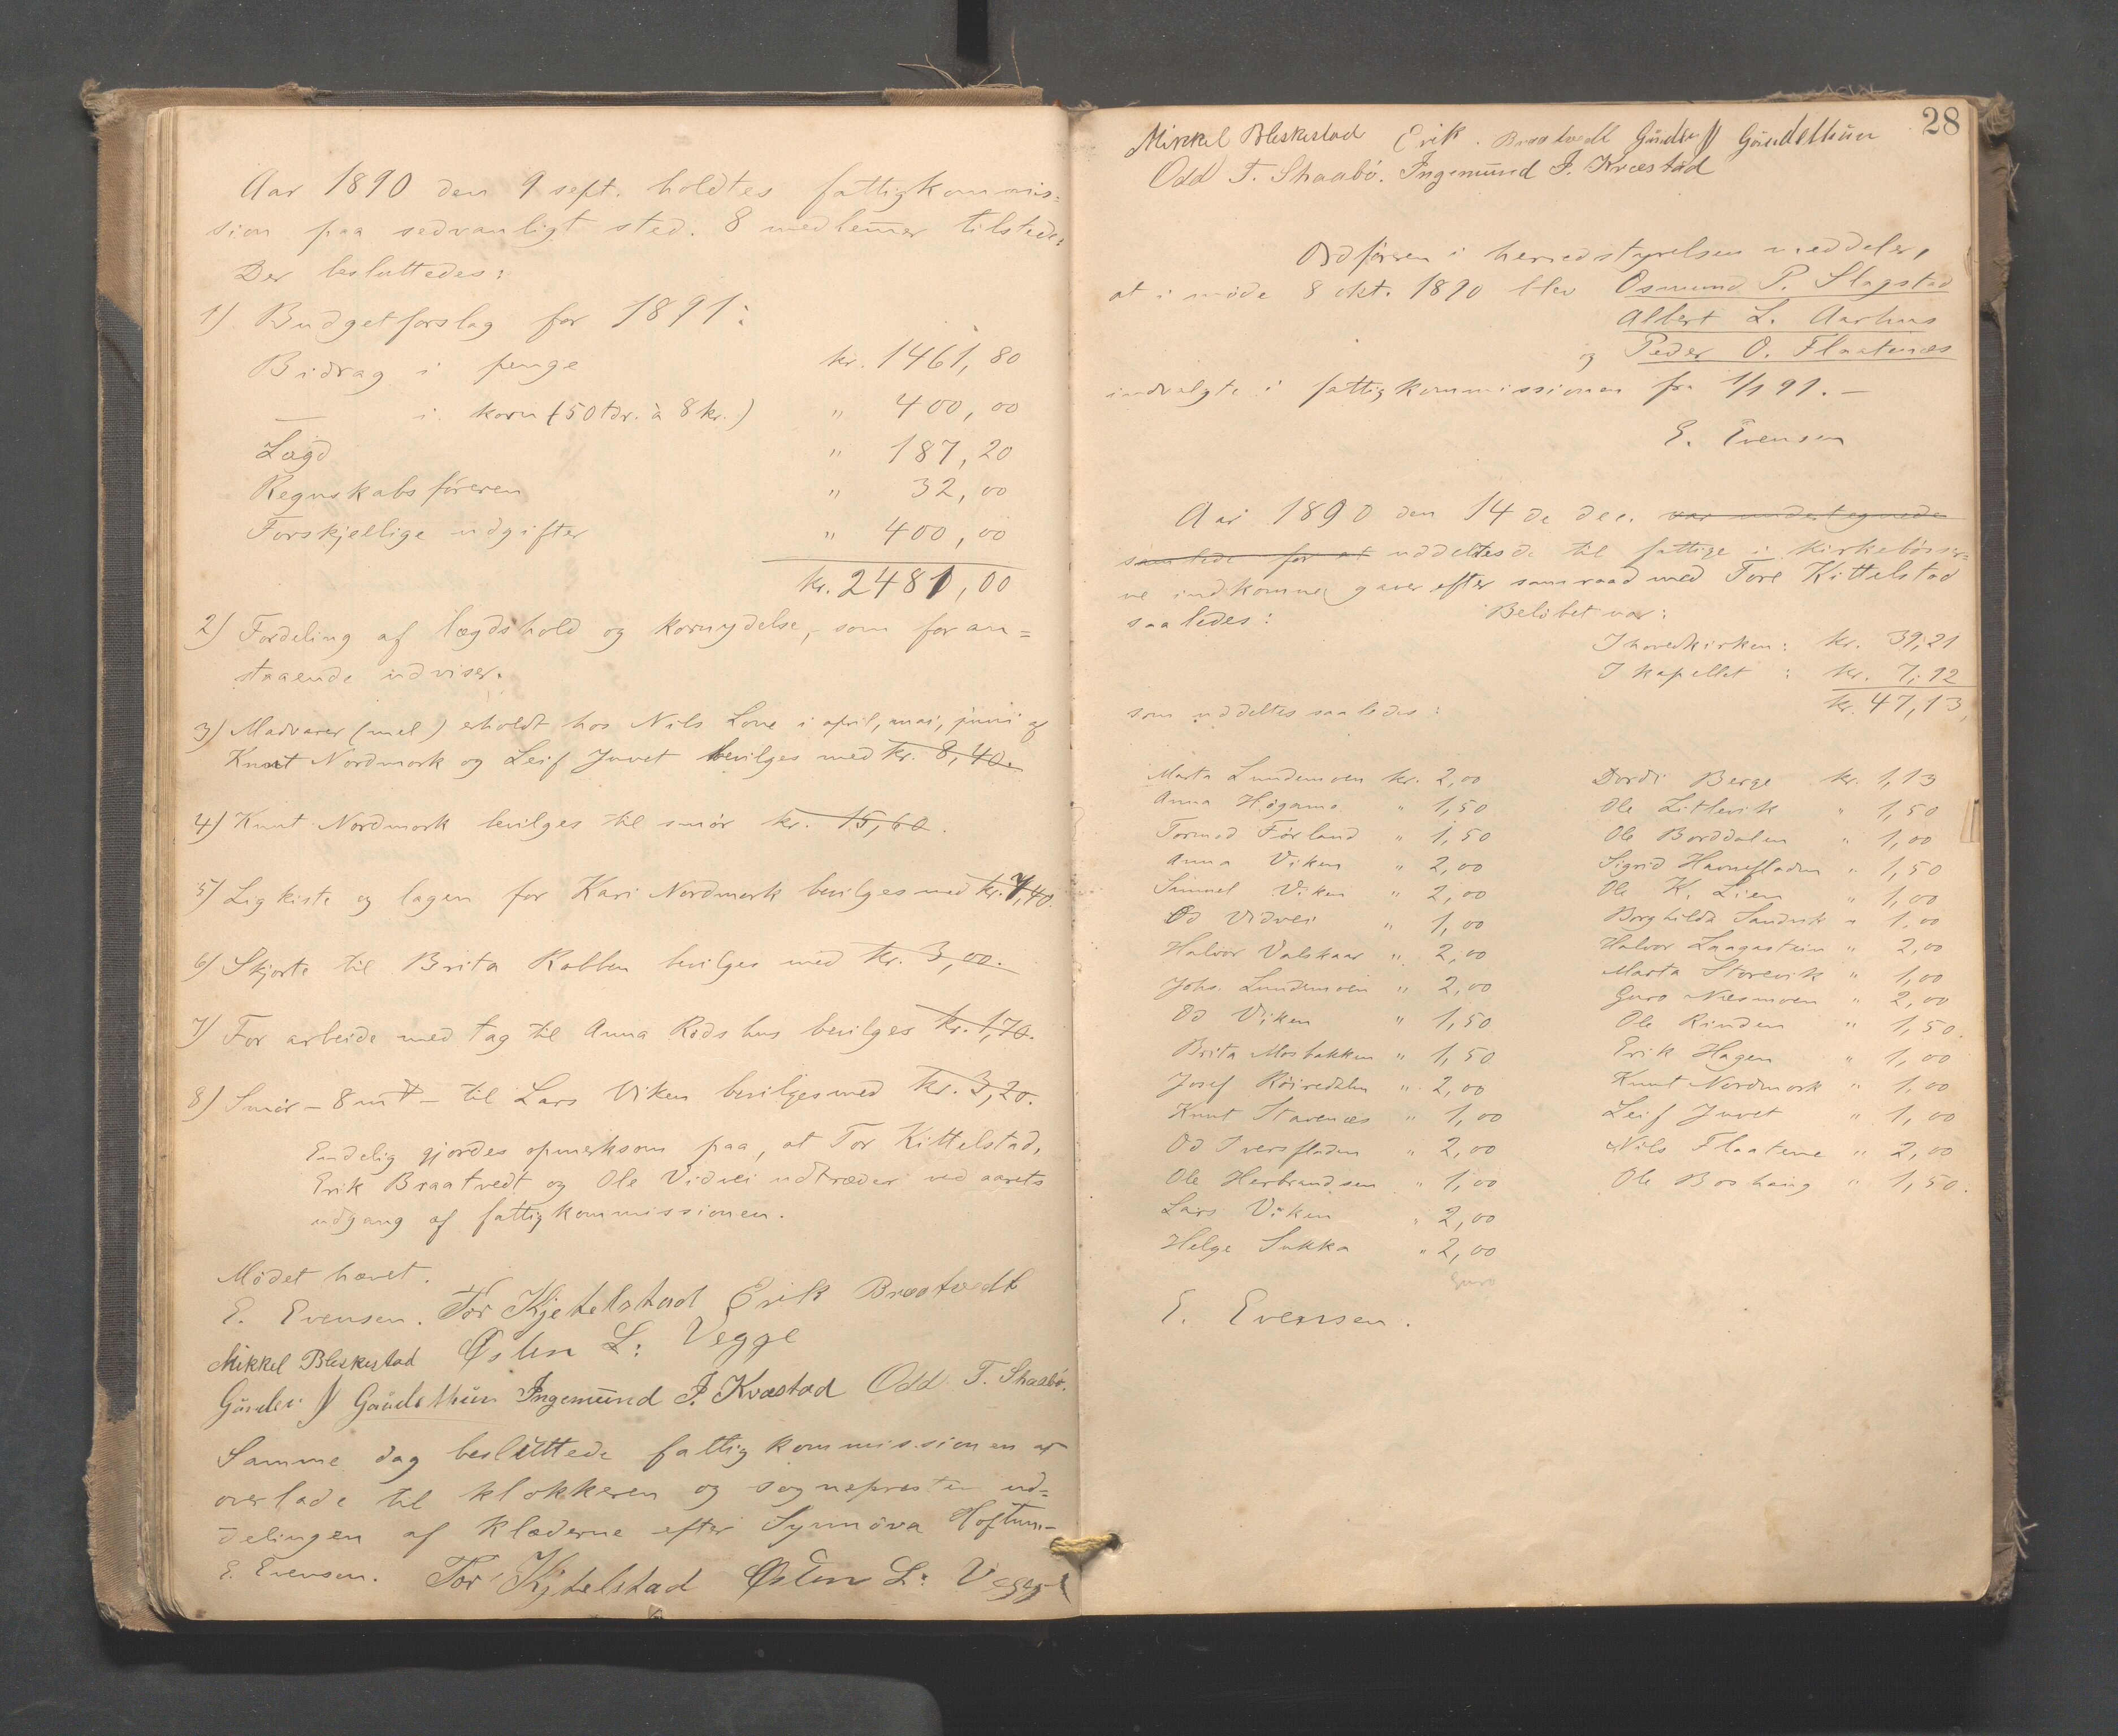 Aar 1890 den 9 sept. holdtes fattigkommis=
sion paa sedvanligt sted. 8 medlemmer tilstede.
Der besluttedes:
1) Budgetforslag for 1891:
Bidrag i penge kr. 1461,80
— i korn (50 tdr. à 8 kr.) " 400,00
Lægd " 187,20
Regnskabsføreren " 32,00
Forskjellige udgifter " 400,00
kr. 2481,00
2) Fordeling af lægdshold og kornydelse, som foran=
staaende udviser.
3) Madvarer (mel) erholdt hos Nils Lone i april, mai, juni af
Knut Nordmork og Leif Juvet bevilges med kr. 8,40.
4) Knut Nordmork bevilges til smør kr. 15,60.
5) Ligkiste og lagen for Kari Nordmork bevilges med kr. 7,40.
6) Skjorte til Brita Rabben bevilges med kr. 3,00.
7) For arbeide med tag til Anna Røds hus bevilges kr. 1,70.
8) Smør – 8 m – til Lars Viken bevilges med kr. 3,20.
Endelig gjordes opmerksom paa, at Tor Kittelstad,
Erik Braatvedt og Ole Vidvei udtræder ved aarets
udgang af fattigkommissionen.
Mødet hævet.
E. Evensen. Tor Kjetelstad Erik Braatvedt
Mikkel Bleskestad Østen L: Vegge
Gunder Gundethun Ingemund I. Kvæstad Odd T. Shaabø.
Samme dag besluttede fattigkommissionen at
overlade til klokkeren og sognepresten ud=
delingen af klæderne efter Synnøva Hoftun.–
E. Evensen. Tor Kjtelstad Østen L: Vegge
28
Mikkel Bleskestad Erik Braatvedt Gunder Gundethun
Odd T. Shaabø. Ingemund I. Kvæstad
Ordføreren i herredstyrelsen meddeler,
at i møde 8 okt. 1890 blev Osmund P. Slagstad
Albert L. Aarhus
og Peder O. Flaatenæs
indvalgte i fattigkommissionen fra 1/1 91. –
E. Evensen
Aar 1890 den 14de dec. var undertegnede
samlede for at uddeltes de til fattige i kirkebøsser=
ne indkomne gaver efter samraad med Tore Kittelstad
saaledes: Beløbet var:
I hovedkirken: kr. 39,21
I kapellet : kr. 7,92
kr. 47,13
som uddeltes saaledes:
Marta Lundemoen kr. 2,00 Dordi Berge kr. 1,13
Anna Høgamo " 1,50 Ole Litlevik " 1,50
Tormod Førland " 1,50 Ole Borddalen " 1,00
Anna Viken " 2,00 Sigrid Havrefladen " 1,50
Simmel Viken " 2,00 Ole K. Lien " 1,00
Od Vidvei " 1,00 Borghilda Sandvik " 1,00
Halvor Valskaar " 2,00 Halvor Laagastein " 2,00
Johs. Lundemoen " 2,00 Marta Storevik " 1,00
Od Viken " 1,50 Guro Nesmoen " 2,00
Brita Mosbakken " 1,50 Ole Rinden " 1,50.
Josef Røiredalen " 2,00 Erik Hagen " 1,00
Knut Starenæs " 1,00 Knut Nordmork " 1,00
Od Iversfladen " 2,00 Leif Juvet " 1,00
Ole Herbrandsen " 1,00 Nils Flaatene " 2,00
Lars Viken " 2,00 Ole Boshaug " 1,50.
Helge Sukka " 2,00
Guro
E. Evensen.